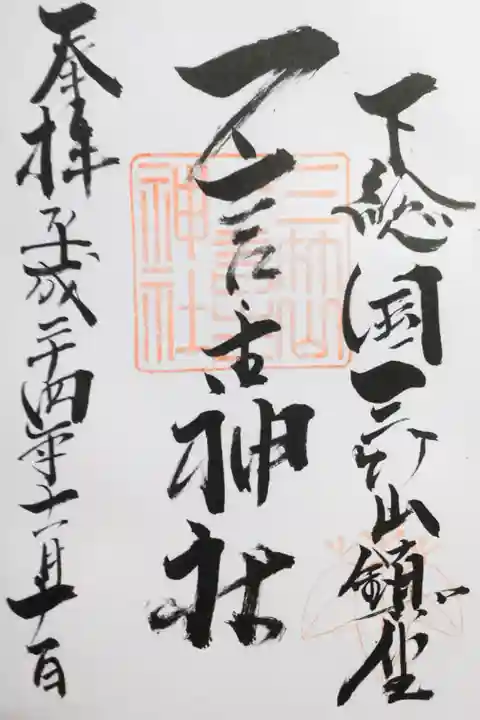 下総国三竹山鎮坐
一言主神社
奉拝 平成二十四年十一月十一日
三竹山
神社